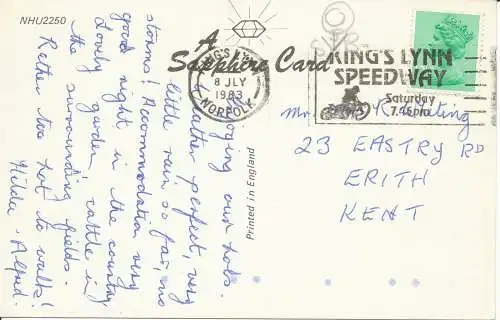 NHU2250
A
Sapphire Card
KING'S LYNN
8 JLY
1983
NORFOLK
KING'S LYNN
SPEEDWAY
Saturday
7.45pm
Printed in England
Enjoying our hols.
Weather perfect, very
little rain so far, no
storms! Accommodation very
good right in the country
Lovely garden, cattle in
the surrounding fields.
Rather too hot to walk!
Hilda & Alfred.
Mr.
23 EASTRY RD
ERITH
KENT